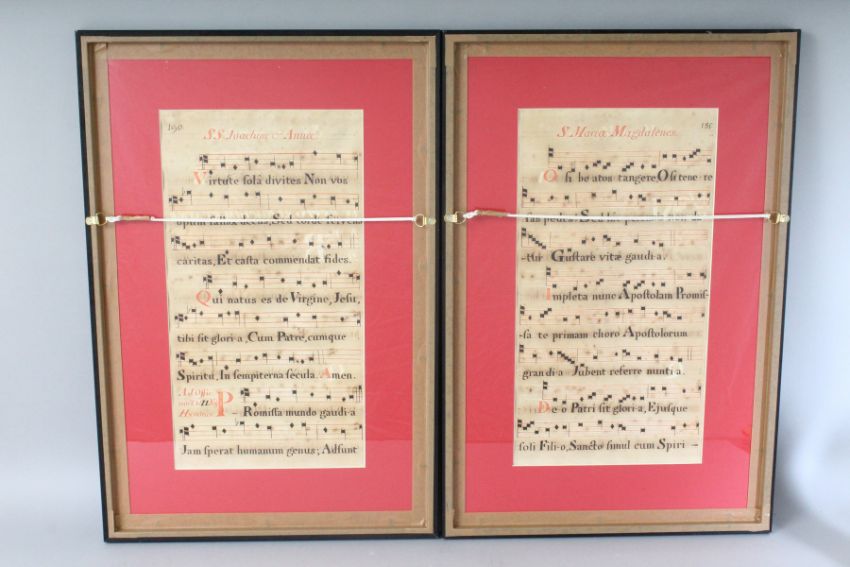 190
S.S. Joachim & Annæ.
Virtute fola divites Non vos
opum fallax decus, Sed
caritas, Et cafta commendat fides.
Qui natus es de Virgine, Jefu,
tibi fit glori-a, Cum Patre, cumque
Spiritu, In fempiterna fecula. Amen.
Ad
P-Romiffa mundo gaudi-a
Jam fperat humanum genus; Adfunt
S. Mariæ Magdalenes.
O fi be atos tangere Ofi tene-re
fas pedes! Sed
-tur Guftare vitæ gaudi-a.
Impleta nunc Apoftolam Promif-
-fa te primam choro Apoftolorum
grandi-a Jubent referre nunti-a.
De-o Patri fit glori-a, Ejufque
foli Fili-o, Sancto fimul cum Spiri-